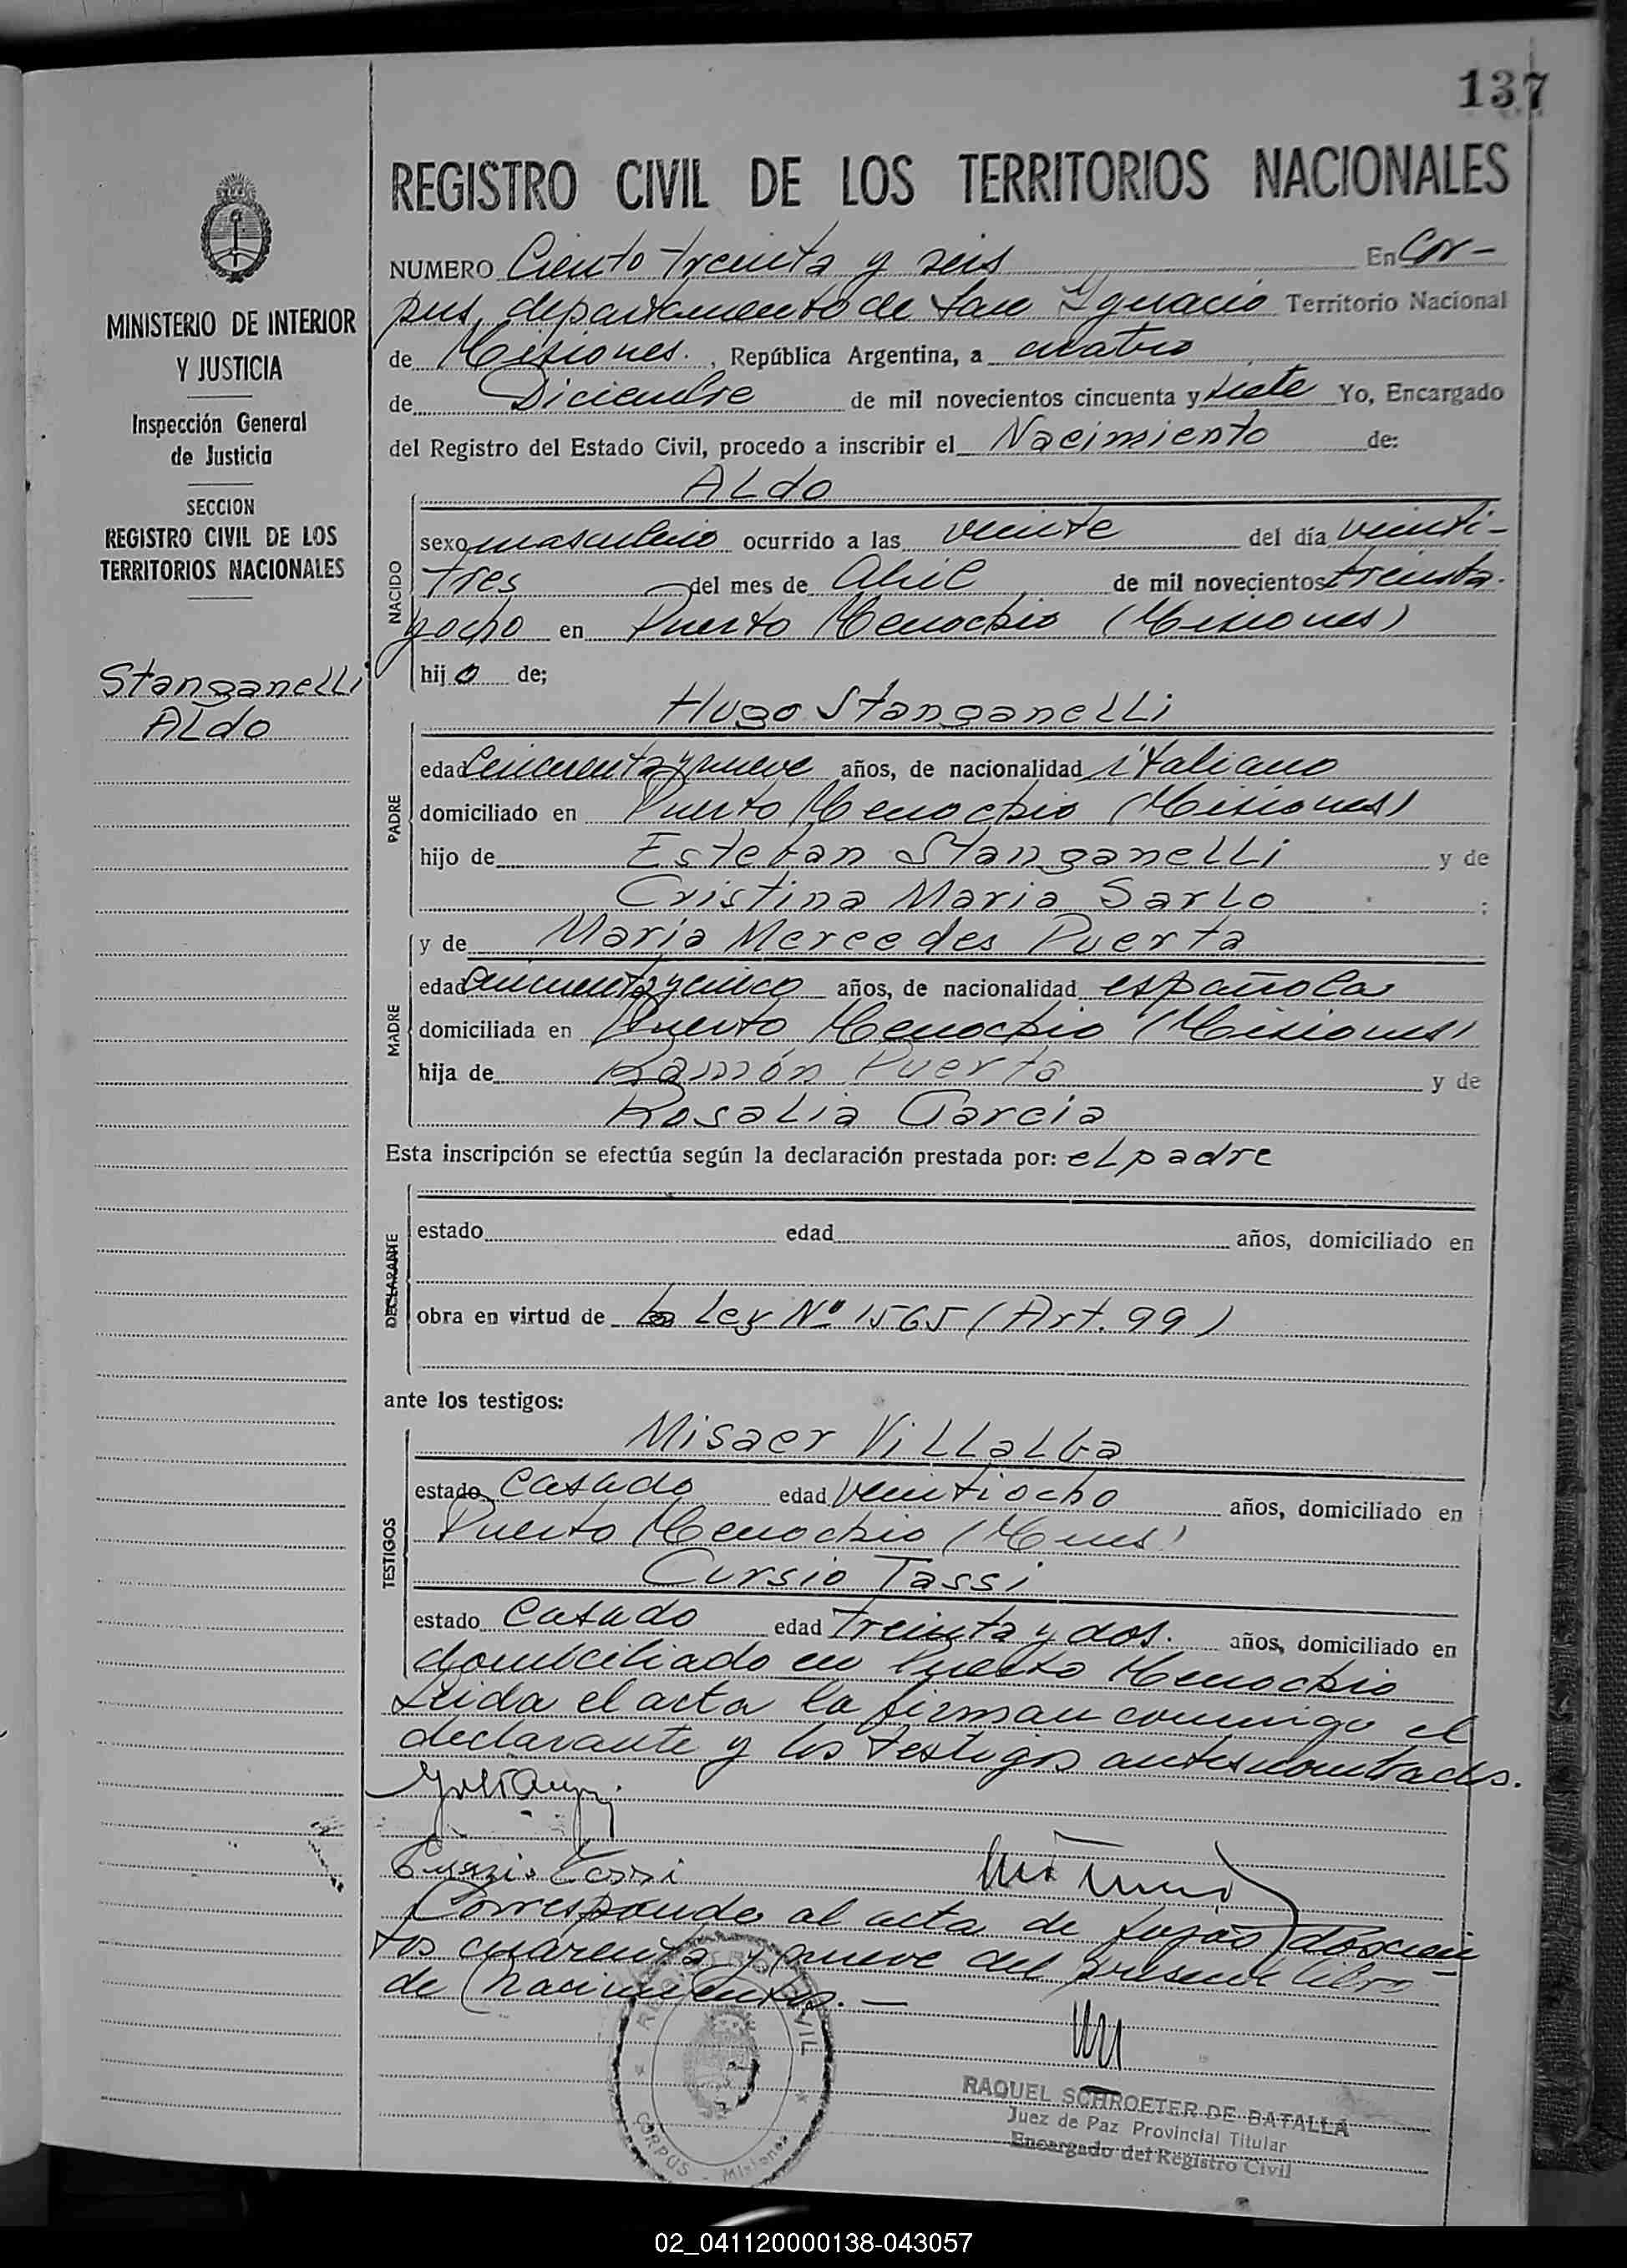 137
REGISTRO CIVIL DE LOS TERRITORIOS NACIONALES
MINISTERIO DE INTERIOR
Y JUSTICIA
Inspección General
de Justicia
SECCION
REGISTRO CIVIL DE LOS
TERRITORIOS NACIONALES
Stanganelli
Aldo
NUMERO Ciento treinta y seis En Cor-
pus, departamento de San Ygnacio Territorio Nacional
de Misiones. , República Argentina, a cuatro
de Diciembre de mil novecientos cincuenta y siete Yo, Encargado
del Registro del Estado Civil, procedo a inscribir el Nacimiento de:
NACIDO
Aldo
sexo masculino ocurrido a las veinte del día veinti-
tres del mes de Abril de mil novecientos treinta
y ocho en Puerto Menochio (Misiones)
hijo de;
PADRE
Hugo Stanganelli
edad cincuenta y nueve años, de nacionalidad italiano
domiciliado en Puerto Menochio (Misiones)
hijo de Esteban Stanganelli y de
Cristina Maria Sarlo ;
MADRE
y de Maria Mercedes Puerta
edad cincuenta y cinco años, de nacionalidad española
domiciliada en Puerto Menochio (Misiones)
hija de Ramón Puerta y de
Rosalia Garcia
Esta inscripción se efectúa según la declaración prestada por: el padre
DECLARANTE
estado edad años, domiciliado en
obra en virtud de la Ley Nº 1565 (Art. 99)
ante los testigos:
TESTIGOS
Misaer Villalba
estado Casado edad veintiocho años, domiciliado en
Puerto Menochio (Mnes)
Cursio Tassi
estado Casado edad treinta y dos. años, domiciliado en
domiciliado en Puerto Menochio
Leida el acta la firman conmigo el
declarante y los testigos antes nombrados.
Tassi
Corresponde al acta de fojas doscien-
tos cuarenta y nueve del presente libro
de nacimientos.—
REGISTRO CIVIL
CORPUS - Misiones
RAQUEL SCHROETER DE BATALLA
Juez de Paz Provincial Titular
Encargado del Registro Civil
02_041120000138-043057